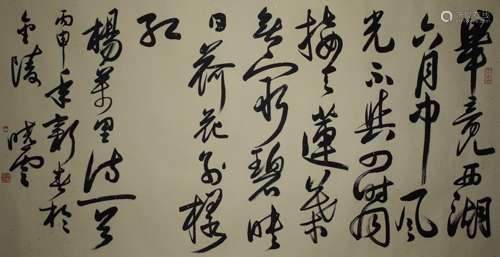 畢竟西湖
六月中風
光不與四時同
接天蓮葉
無窮碧映
日荷花別樣
紅
楊萬里詩一首
丙申年新春於
金陵 曉雲